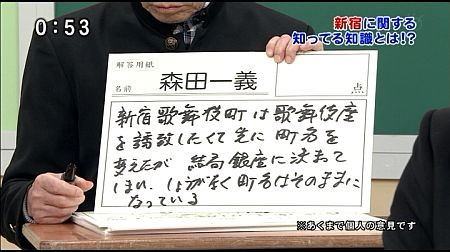 0:53
新宿に関する
知ってる知識とは!?
解答用紙
名前
森田一義
点
新宿歌舞伎町は歌舞伎座
を誘致したくて先に町名を
変えたが 結局銀座に決まって
しまい、しょうがなく町名はそのままに
なっている
※あくまで個人の意見です